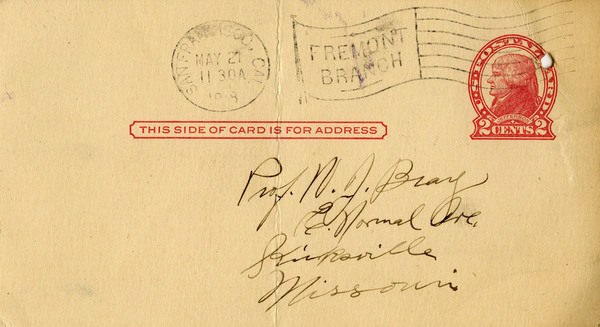 SAN FRANCISCO, CAL.
MAY 21
11 30A
1918
FREMONT
BRANCH
U.S. POSTAL CARD
JEFFERSON
2 CENTS 2
THIS SIDE OF CARD IS FOR ADDRESS
Prof. W. J. Bray
E. Normal Ave.
Kirksville
Missouri